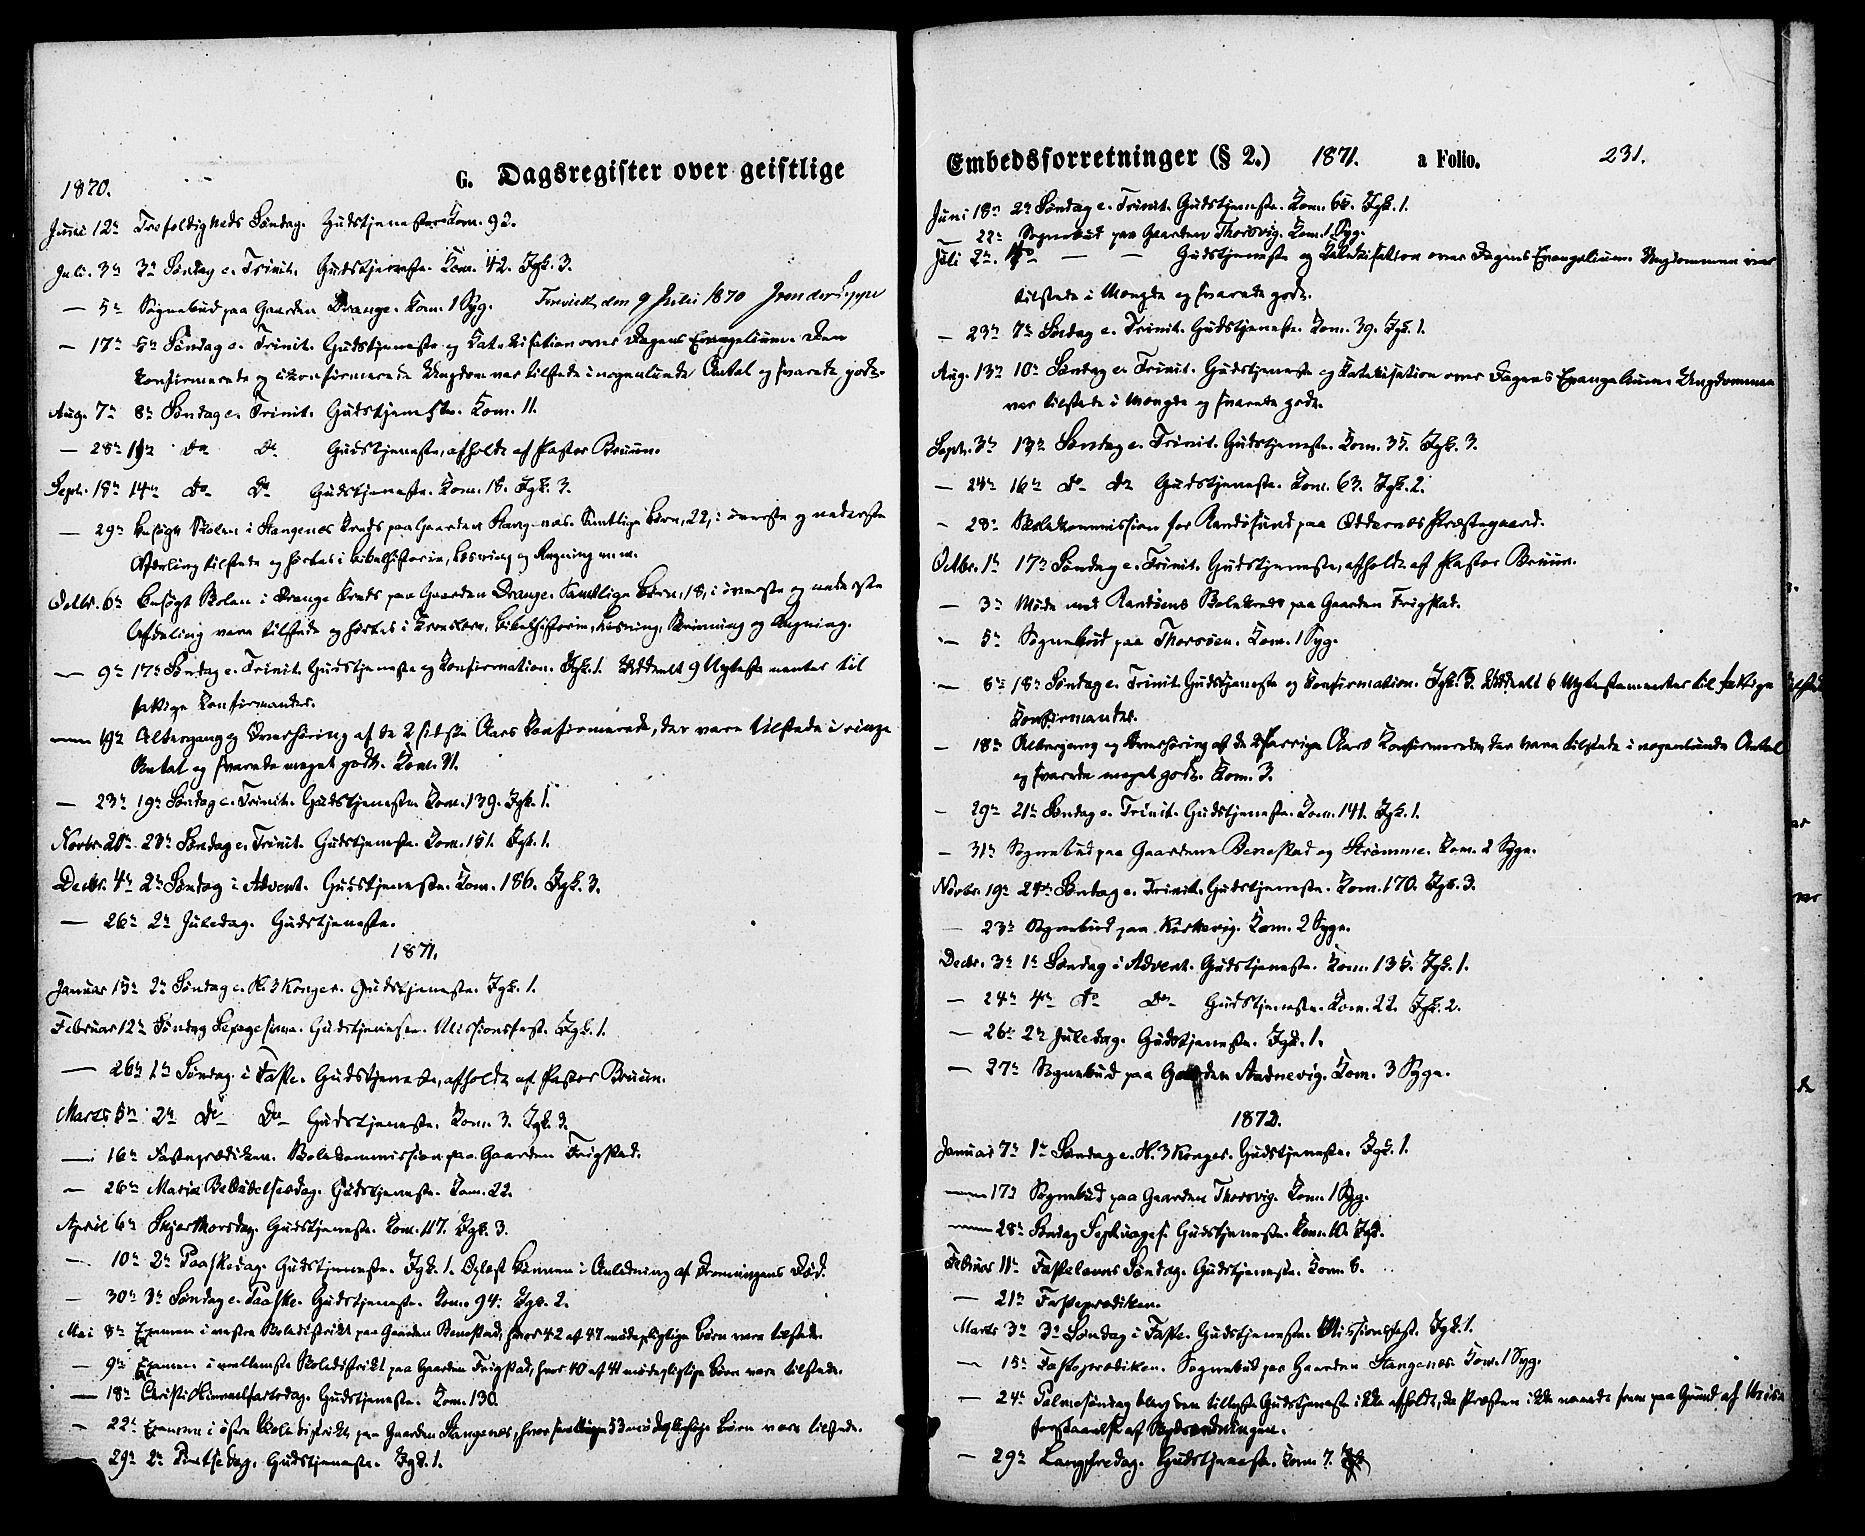 G. Dagsregister over geistlige
1870.
Juni 12te Trefoldigheds Søndag. Gudstjeneste. Kom. 92.
Juli. 3die 3die Søndag e. Trinit. Gudstjeneste. Kom. 42. Jgk. 3.
— 5te Sognebud paa Gaarden Drange. Kom. 1 Syg. den 9 Juli 1870
— 17de 5te Søndag e. Trinit. Gudstjeneste og Katekisation over Dagens Evangelium. Den
konfirmerede og ukonfirmerede Ungdom var tilstede i nogenlunde Antal og svarede godt.
Aug. 7de 8de Søndag e. Trinit. Gudstjeneste. Kom. 11.
— 28de 11te do do Gudstjeneste, afholdt af Pastor Bruun.
Septr. 18de 14de do do Gudstjeneste. Kom. 18. Jgk. 3.
— 29de besøgt Skolen i Stangenes Kreds paa Gaarden Stangenes. Samtlige Børn, 22, i øverste og nederste
Afdeling tilstede og hørtes i Bibelhistorie, Læsning og Regning m.m.
Octbr. 6te besøgt Skolen i Drange Kreds paa Gaarden Drange. Samtlige Børn, 18, i øverste og nederste
Afdeling vare tilstede og hørtes i Troeslære, Bibelhistorie, Læsning, Skrivning og Regning.
— 9de 17de Søndag e. Trinit. Gudstjeneste og Konfirmation. Jgk. 1. Uddeelt 9 Nytestamenter til
fattige Konfirmander.
— 19de Altergang og Overhøring af de 2 sidste Aars Konfirmerede, der vare tilstede i ringe
Antal og svarede meget godt. Kom. 31.
— 23de 19de Søndag e. Trinit. Gudstjeneste. Kom. 139. Jgk. 1.
Novbr. 20de 23de Søndag e. Trinit. Gudstjeneste. Kom. 151. Jgk. 1.
Decbr. 4de 2den Søndag i Advent. Gudstjeneste. Kom. 186. Jgk. 3.
— 26de 2den Juledag. Gudstjeneste.
1871.
Januar 15de 2den Søndag e. H. 3 Konger. Gudstjeneste. Jgk. 1.
Februar 12te Søndag Sexagesima. Gudstjeneste. Missionsfest. Jgk. 1.
— 26de 1ste Søndag i Faste. Gudstjeneste, afholdt af Pastor Bruun.
Marts 5te 2den do do Gudstjeneste. Kom. 3. Jgk. 3.
— 16de Fasteprædiken. Skolekommission paa Gaarden Frigstad.
— 26de Mariæ Bebudelsesdag. Gudstjeneste. Kom. 22.
April 6te Skjærthorsdag. Gudstjeneste. Kom. 117. Jgk. 3.
— 10de 2den Paaskedag. Gudstjeneste. Jgk. 1. Oplæst Bønnen i Anledning af Dronningens Død.
— 30te 3die Søndag e. Paaske. Gudstjeneste. Kom. 94. Jgk. 2.
Mai 8de Examen i vestre Skoledistrikt paa Gaarden Benestad, hvor 42 af 47 mødepligtige Børn vare tilstede.
— 9de Examen i mellemste Skoledistrikt paa Gaarden Frigstad, hvor 40 af 41 mødepligtige Børn vare tilstede.
— 18de Christi Himmelfartsdag. Gudstjeneste. Kom. 130.
— 22de Examen i østre Skoledistrikt paa Gaarden Stangenes, hvor samtlige 53 mødepligtige Børn vare tilstede.
29de 2den Pintsedag. Gudstjeneste. Jgk. 1.
Embedsforretninger (§ 2.) 1871. a Folio. 231.
Juni 18de 2den Søndag e. Trinit. Gudstjeneste. Kom. 65. Jgk. 1.
— 22de Sognebud paa Gaarden Thorsvig. Kom. 1 Syg.
Juli 2den 4de — — Gudstjeneste og Katekisation over Dagens Evangelium. Ungdommen var
tilstede i Mængde og svarede godt.
— 23de 7de Søndag e. Trinit. Gudstjeneste. Kom. 39. Jgk. 1.
Aug. 13de 10de Søndag e. Trinit. Gudstjeneste og Katekisation over Dagens Evangelium. Ungdommen
var tilstede i Mængde og svarede godt.
Septr. 3die 13de Søndag e. Trinit. Gudstjeneste. Kom. 35. Jgk. 3.
— 24de 16de do do Gudstjeneste. Kom. 63. Jgk. 2.
— 28de Skolekommission for Randøsund paa Oddernes Præstegaard.
Octbr. 1ste 17de Søndag e. Trinit. Gudstjeneste, afholdt af Pastor Bruun.
— 3die Møde med Randøens Skolekreds paa Gaarden Frigstad.
— 5te Sognebud paa Thorsøen. Kom. 1 Syg.
— 8de 18de Søndag e. Trinit. Gudstjeneste og Konfirmation. Jgk. 3. Uddeelt 6 Nytestamenter til fattige
Konfirmander.
— 18de Altergang og Overhøring af de 2 forrige Aars Konfirmerede, der vare tilstede i nogenlunde Antal
og svarede meget godt. Kom. 3.
— 29de 21de Søndag e. Trinit. Gudstjeneste. Kom. 141. Jgk. 1.
— 31te Sognebud paa Gaardene Benestad og Strømme. Kom. 2 Syge.
Novbr. 19de 24de Søndag e. Trinit. Gudstjeneste. Kom. 170. Jgk. 3.
— 23de Sognebud paa Kirkevig. Kom. 2 Syge.
Decbr. 3die 1ste Søndag i Advent. Gudstjeneste. Kom. 135. Jgk. 1.
— 24de 4de do do Gudstjeneste. Kom. 22. Jgk. 2.
— 26de 2den Juledag. Gudstjeneste. Jgk. 1.
— 27de Sognebud paa Gaarden Aadnevig. Kom. 3 Syge.
1872.
Januar 7de 1ste Søndag e. H. 3 Konger. Gudstjeneste. Jgk. 1.
— 17de Sognebud paa Gaarden Thorsvig. Kom. 1 Syg.
— 28de Søndag Septuages. Gudstjeneste. Kom. 10. Jgk.
Februar 11te Fastelavns Søndag. Gudstjeneste. Kom. 6.
— 21de Fasteprædiken.
Marts 3die 3die Søndag i Faste. Gudstjeneste. Missionsfest. Jgk. 1.
— 15de Fasteprædiken. Sognebud paa Gaarden Stangenes. Kom. 1 Syg.
— 24de Palmesøndag blev den tillyste Gudstjeneste ikke afholdt, da Præsten ikke naaede frem paa Grund af Mis-
forstaaelse af Skydsordningen.
— 29de Langfredag. Gudstjeneste. Kom. 7.